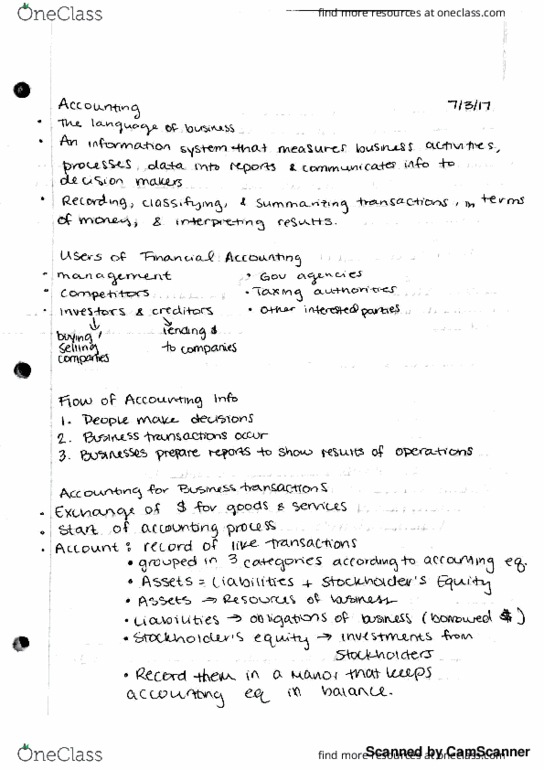 OneClass
find more resources at oneclass.com
Accounting 7/3/17
• The language of business
• An information system that measures business activities,
processes, data into reports & communicates info to
decision makers
• Recording, classifying, & summarizing transactions, in terms
of money, & interpreting results.
Users of Financial Accounting
• management • Gov agencies
• competitors • Taxing authorities
• investors & creditors • other interested parties
buying/ lending $
selling to companies
companies
Flow of Accounting Info
1. People make decisions
2. Business transactions occur
3. Businesses prepare reports to show results of operations
Accounting for Business transactions
• Exchange of $ for goods & services
• Start of accounting process
• Account: record of like transactions
• grouped in 3 categories according to accounting eq.
• Assets = Liabilities + Stockholder's Equity
• Assets → Resources of business
• Liabilities → obligations of business (borrowed $)
• Stockholder's equity → investments from
stockholders
• Record them in a manor that keeps
accounting eq in balance.
OneClass
find more resources at oneclass.com
Scanned by CamScanner